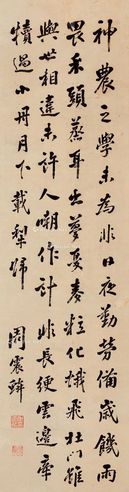 神農之學未為非日夜勤勞備歲饑雨
畏禾頭蒸耳出夢憂麥粒化蛾飛杜門雖
與世相違未許人嘲作計非長綆雲邊牽
犢過小舟月下載犁歸
周震鱗